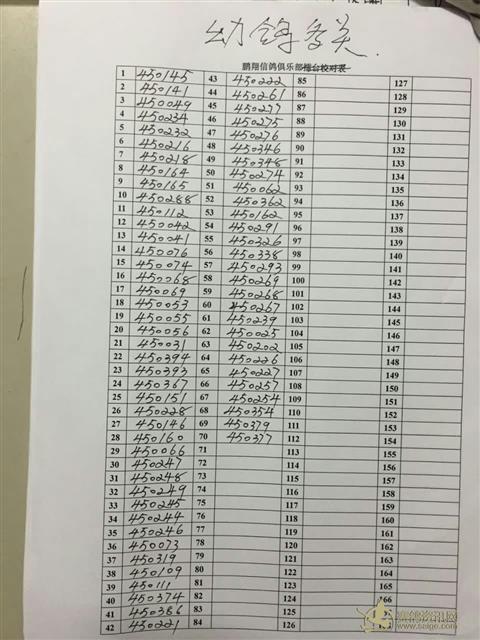 幼鸽多关
鹏翔信鸽俱乐部擂台校对表
1 450145 43 450222 85 127
2 450141 44 450261 86 128
3 450049 45 450277 87 129
4 450234 46 450275 88 130
5 450232 47 450276 89 131
6 450216 48 450346 90 132
7 450218 49 450348 91 133
8 450164 50 450274 92 134
9 450165 51 450062 93 135
10 450288 52 450362 94 136
11 450112 53 450162 95 137
12 450042 54 450291 96 138
13 450041 55 450326 97 139
14 450076 56 450338 98 140
15 450074 57 450293 99 141
16 450068 58 450269 100 142
17 450069 59 450268 101 143
18 450053 60 450267 102 144
19 450055 61 450239 103 145
20 450056 62 450025 104 146
21 450031 63 450202 105 147
22 450394 64 450226 106 148
23 450393 65 450227 107 149
24 450367 66 450257 108 150
25 450151 67 450254 109 151
26 450228 68 450354 110 152
27 450146 69 450379 111 153
28 450160 70 450377 112 154
29 450066 71 113 155
30 450247 72 114 156
31 450248 73 115 157
32 450249 74 116 158
33 450245 75 117 159
34 450244 76 118 160
35 450246 77 119 161
36 450073 78 120 162
37 450319 79 121 163
38 450109 80 122 164
39 450111 81 123 165
40 450374 82 124 166
41 450386 83 125
42 450221 84 126
赛鸽资讯网
www.saige.com